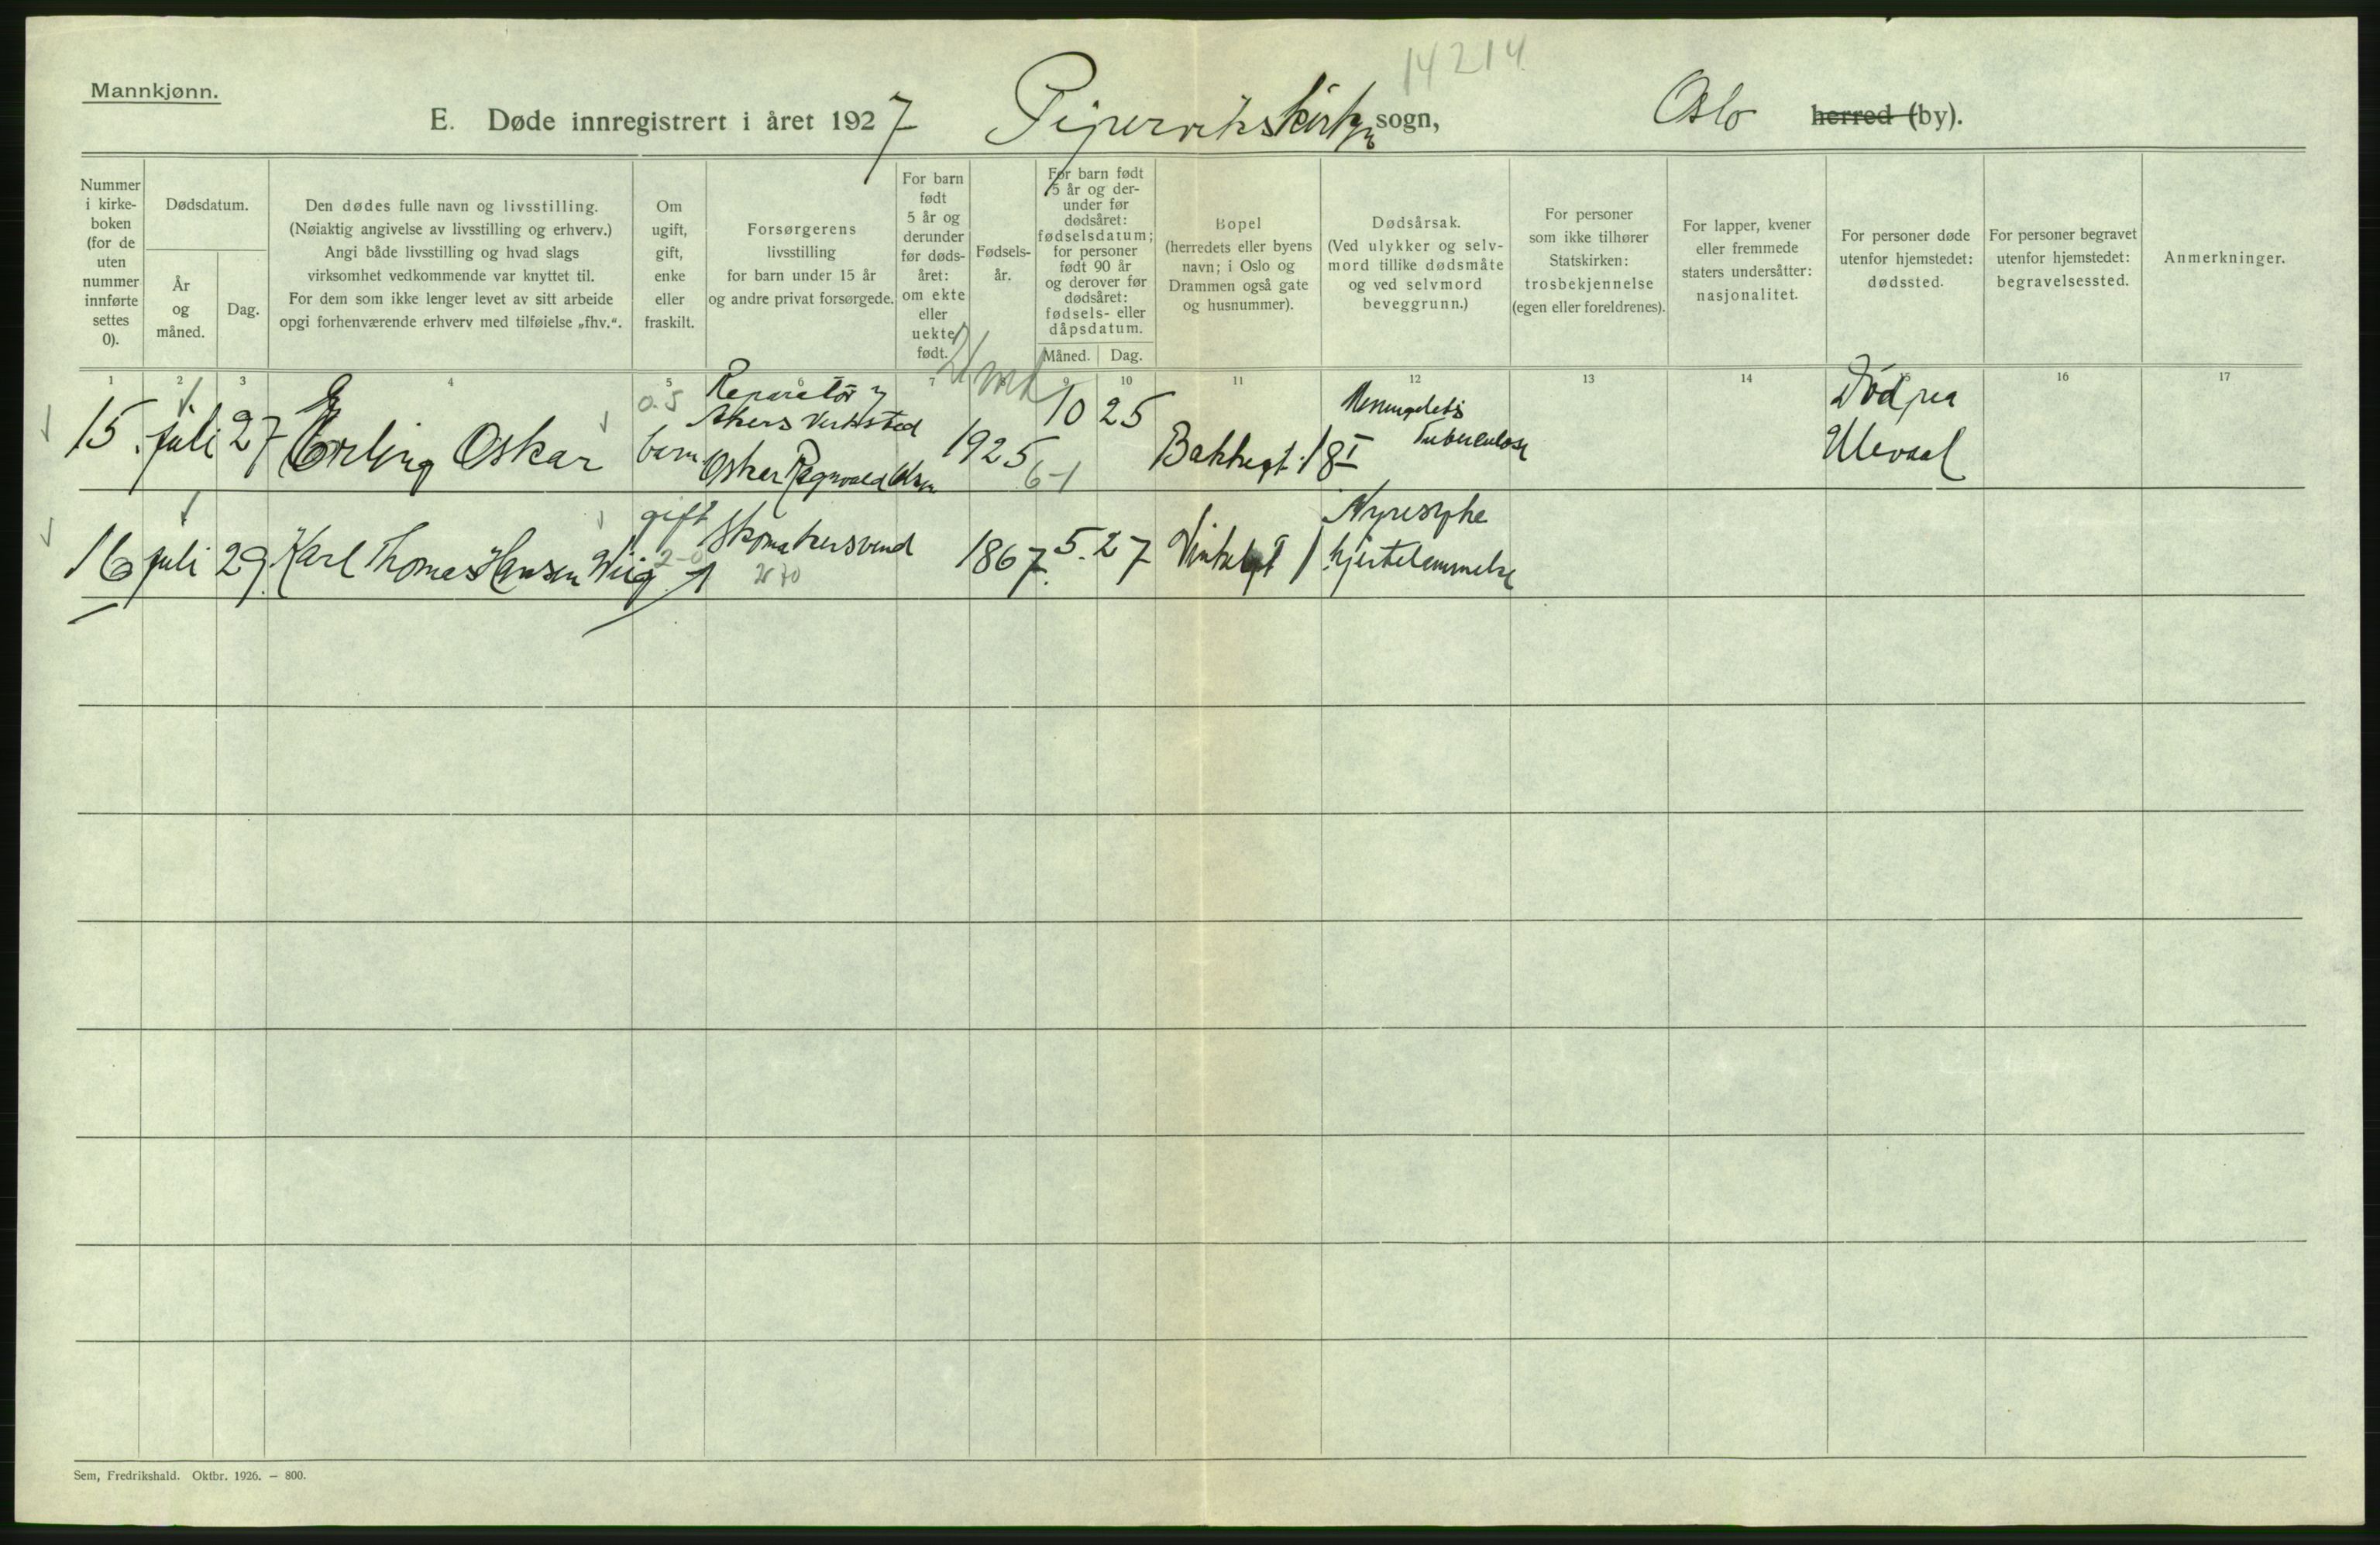 14214
Mannkjønn.
E. Døde innregistrert i året 1927 Pipervikskirken sogn, Oslo herred (by).
Nummer i kirke-boken (for de uten nummer innførte settes 0).
Dødsdatum.
År og måned.
Dag.
Den dødes fulle navn og livsstilling.
(Nøiaktig angivelse av livsstilling og erhverv.)
Angi både livsstilling og hvad slags
virksomhet vedkommende var knyttet til.
For dem som ikke lenger levet av sitt arbeide
opgi forhenværende erhverv med tilføielse „fhv.“.
Om ugift, gift, enke eller fraskilt.
Forsørgerens
livsstilling
for barn under 15 år
og andre privat forsørgede.
For barn født 5 år og derunder før døds-året: om ekte eller uekte født.
Fødsels-år.
For barn født 5 år og der-under før dødsåret: fødselsdatum; for personer født 90 år og derover før dødsåret: fødsels- eller dåpsdatum.
Måned. Dag.
Bopel
(herredets eller byens
navn; i Oslo og
Drammen også gate
og husnummer).
Dødsårsak.
(Ved ulykker og selv-
mord tillike dødsmåte
og ved selvmord
beveggrunn.)
For personer
som ikke tilhører
Statskirken:
trosbekjennelse
(egen eller foreldrenes).
For lapper, kvener
eller fremmede
staters undersåtter:
nasjonalitet.
For personer døde
utenfor hjemstedet:
dødssted.
For personer begravet
utenfor hjemstedet:
begravelsessted.
Anmerkninger.
1 2 3 4 5 6 7 8 9 10 11 12 13 14 15 16 17
15. juli 27 Erling Oskar
o.5
barn
Reparatör
Akers Verksted
Oskar Ragnvald Olsen
1925 10 25
6-1
Bakkegt. 18 I
Tuberculose
Död paa
Ulevaal
16 juli 29. Karl Thomas Hansen Wiig
gift
2-0
Skomakersvend
1867. 5. 27
Vinkelgt 1
Nyresyke
hjertelammelse
Sem, Fredrikshald. Oktbr. 1926. — 800.